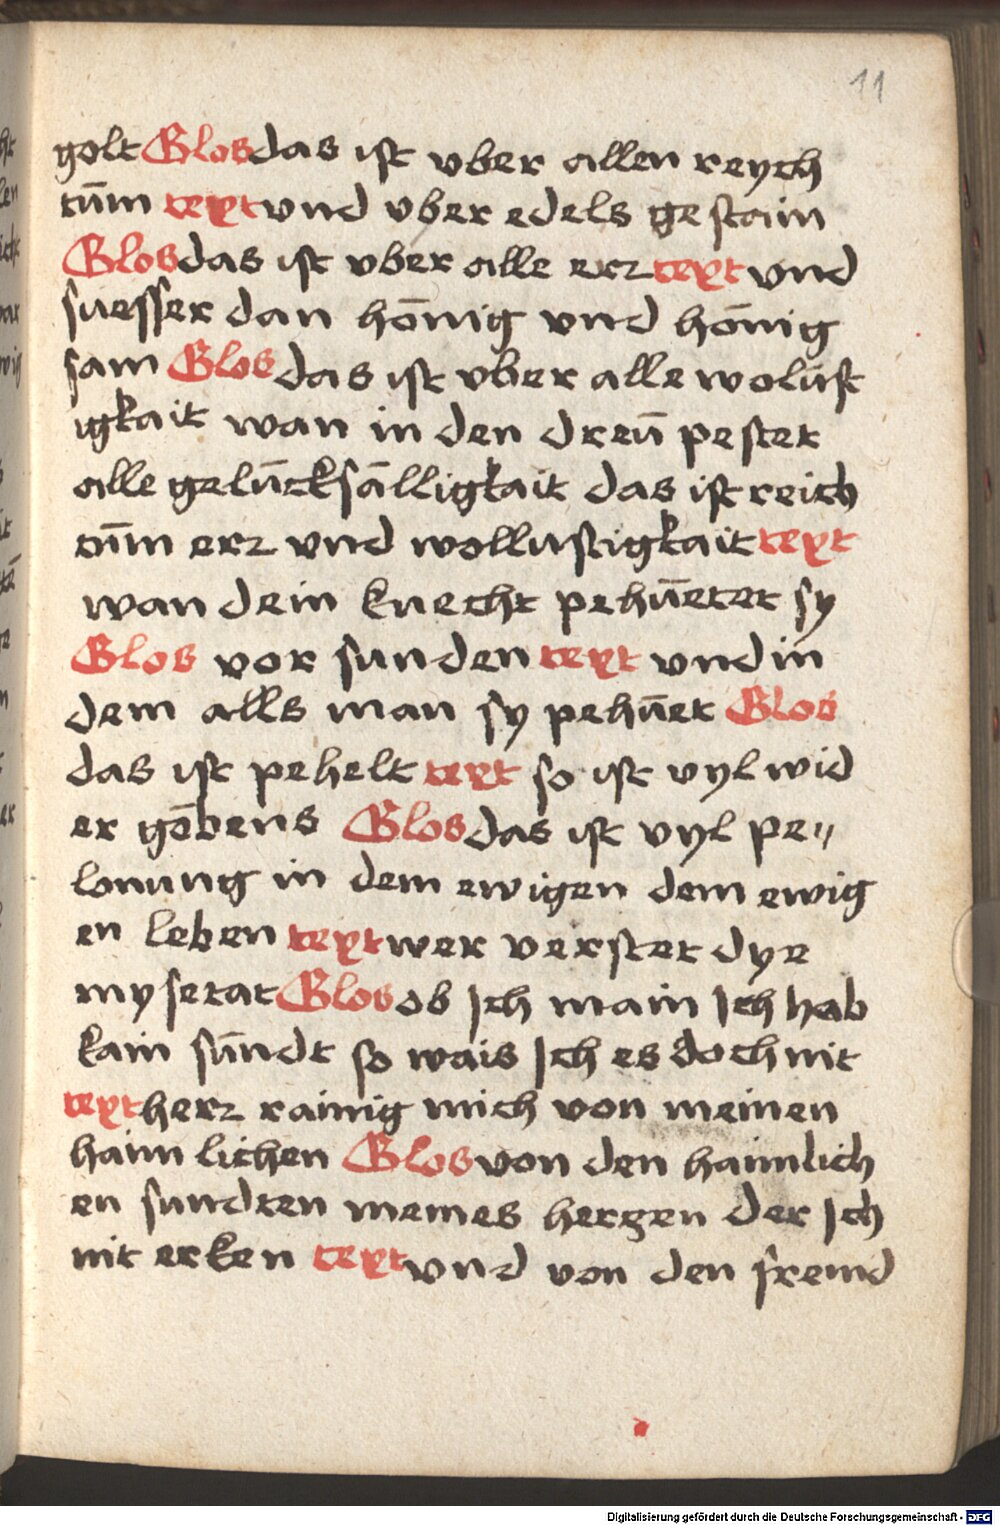 11
golt Glos das ist vber allen reych
tūm text vnd vber edels gestain
Glos das ist vber alle erz text vnd
suesser dan hōnig vnd hōnig
sam Glos das ist vber alle wolūst
igkait wan in den dreū pestet
alle gelūcksālligkait das ist reich
tūm erz vnd wollustigkait text
wan dein knecht pehūetet sy
Glos vor sunden text vnd in
dem alls man sy pehūet Glos
das ist pehelt text so ist vyl wid
er gēbens Glos das ist vyl pe〃
lonung in dem ewigen dem ewig
en leben text wer verstet dye
mysetat Glos ob Ich main Ich hab
kain sūndt so wais Ich es doch nit
text herz rainig mich von meinen
haimlichen Glos von den haimlich
en sundten meines herzen der Ich
nit erken text vnd von den fremd
Digitalisierung gefördert durch die Deutsche Forschungsgemeinschaft - DFG